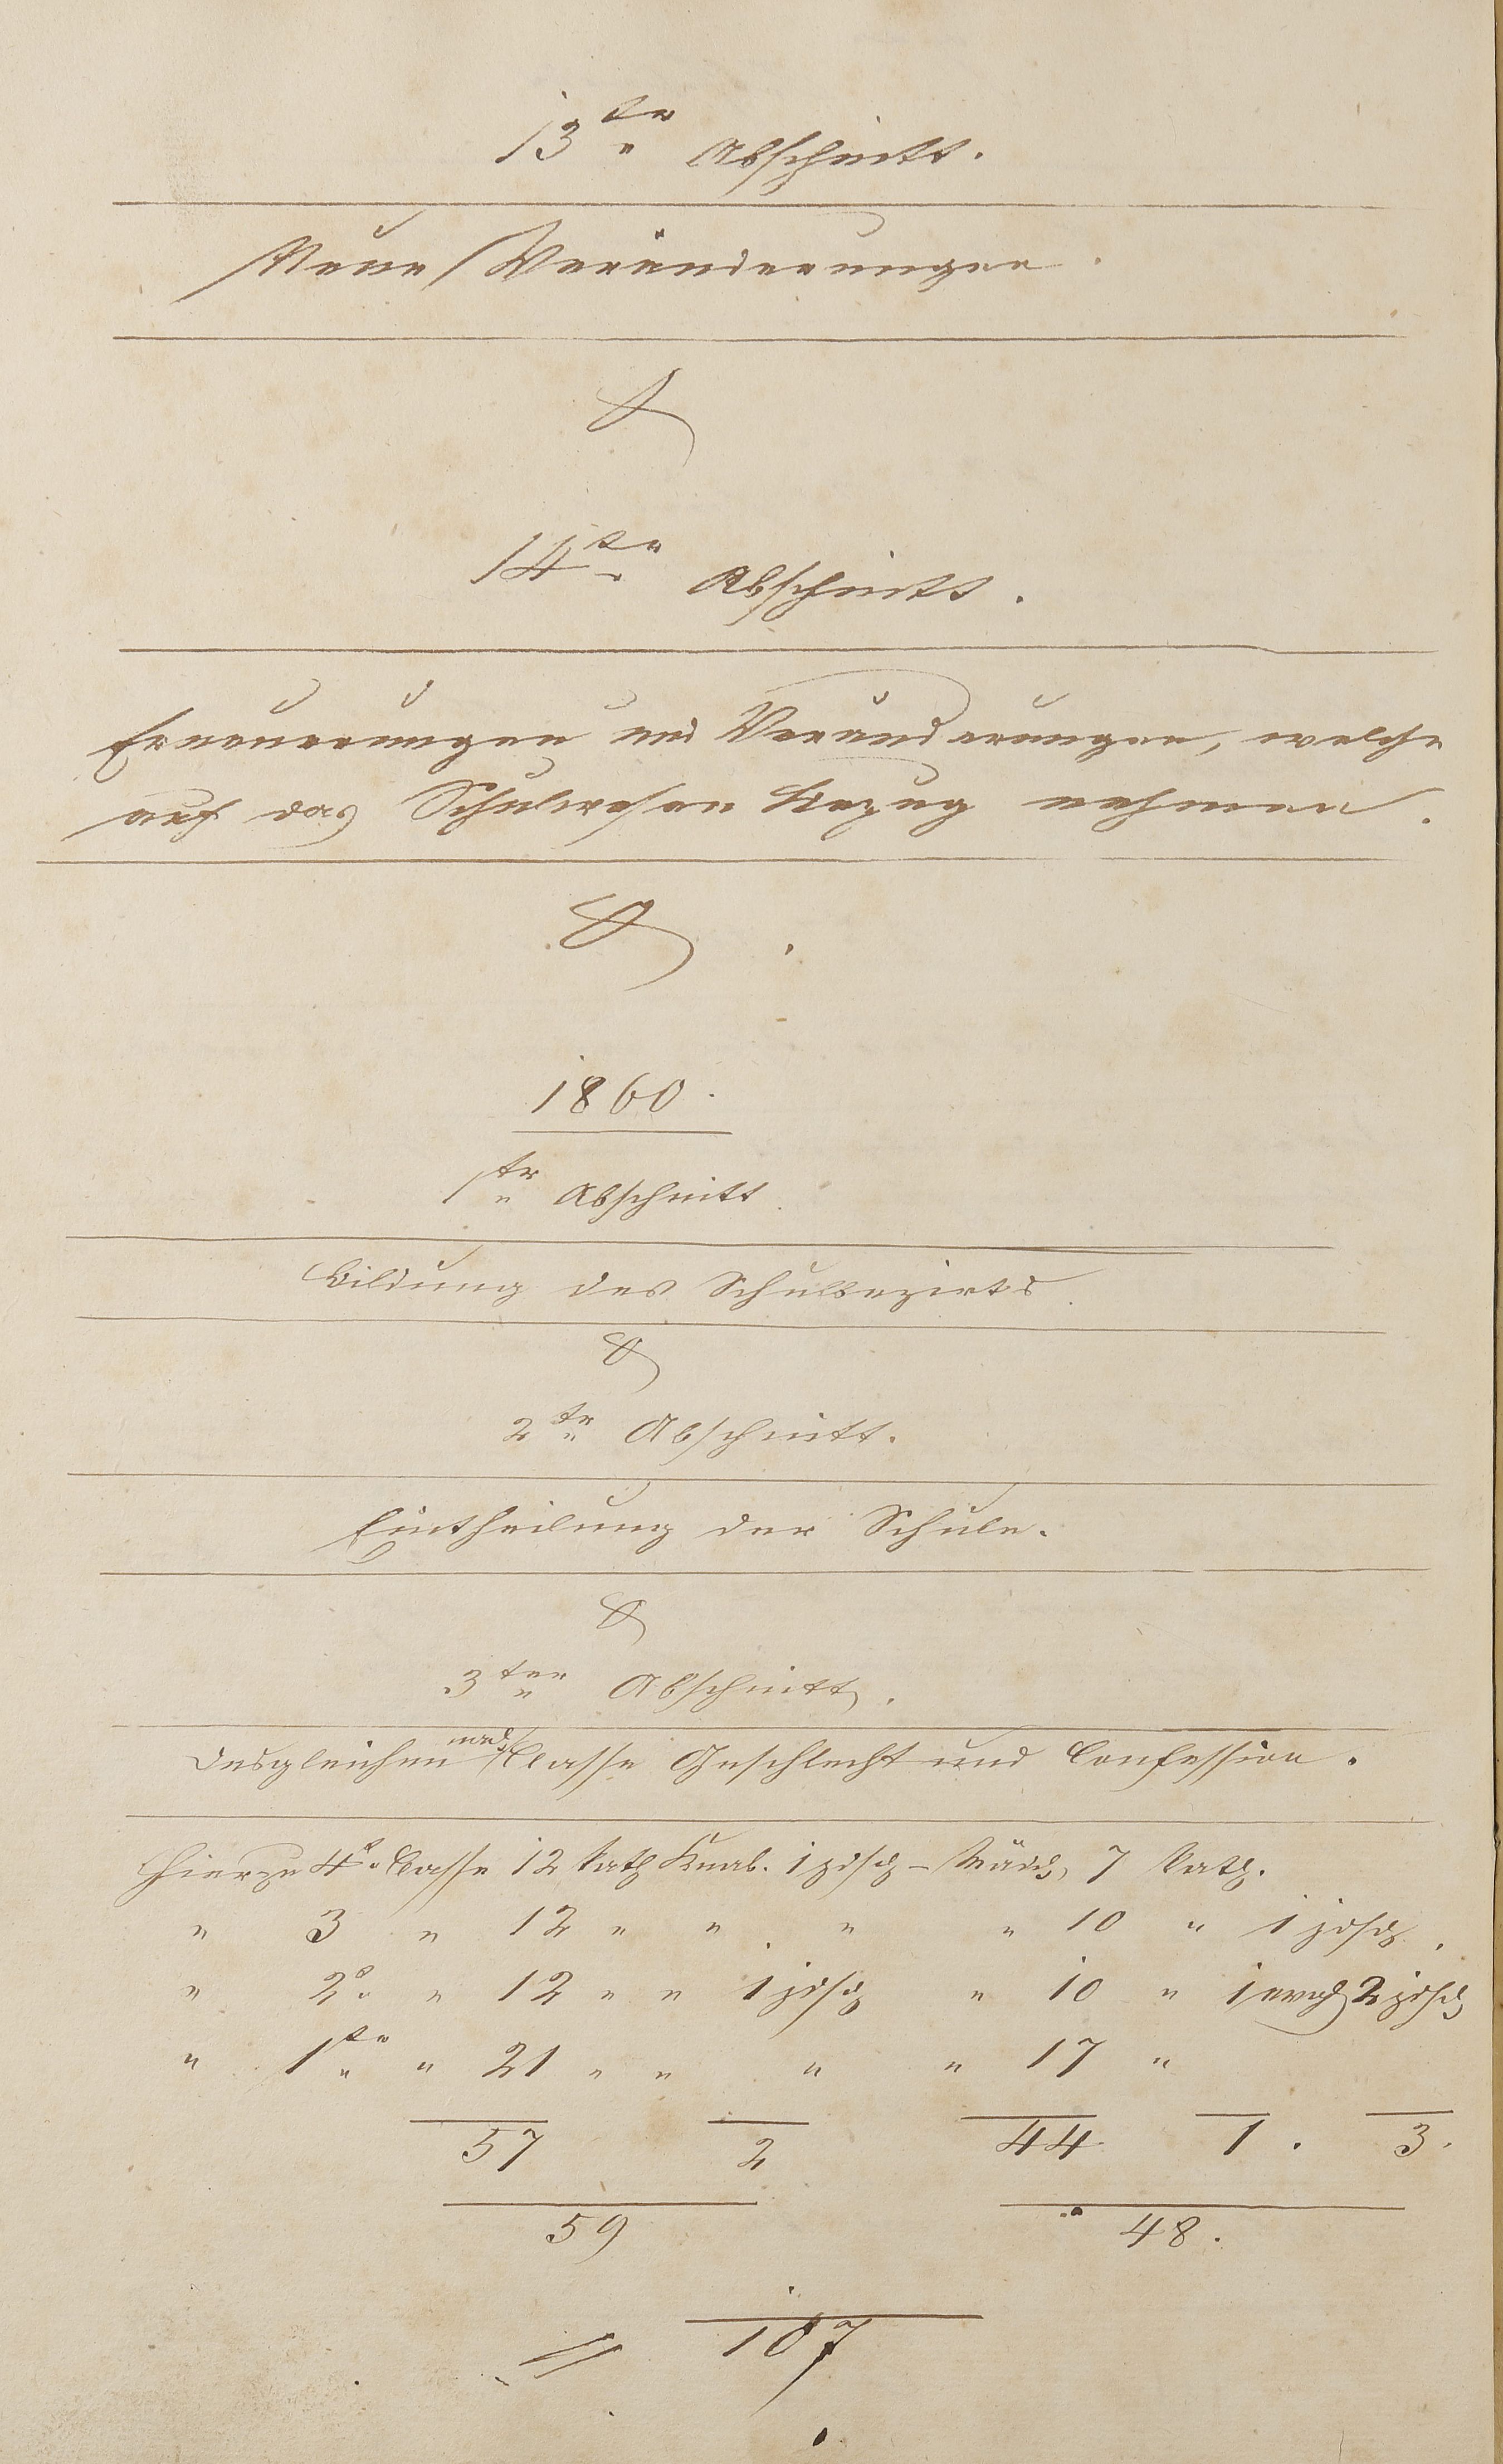 13ter Abschnitt.
Neue Veränderungen.
14ter Abschnitt.
Erneuerungen und Veränderungen, welche
auf das Schulwesen Bezug nehmen.
1860.
1ter Abschnitt
Bildung des Schulbezirks.
2ter Abschnitt.
Eintheilung der Schule.
3ter Abschnitt.
Desgleichen nach Classe Geschlecht und Confession.
Hierzu 4te Classe 12 kath Knab. 1 jdsch - Mädch, 7 kath.
" 3 " 12 " " " " 10 " 1 jdsch.
" 2te " 12 " " 1 jdsch " 10 " 1 evgl 2 jdsch
" 1te " 21 " " " " 17 "
57 2 44 1. 3.
59 48.
107